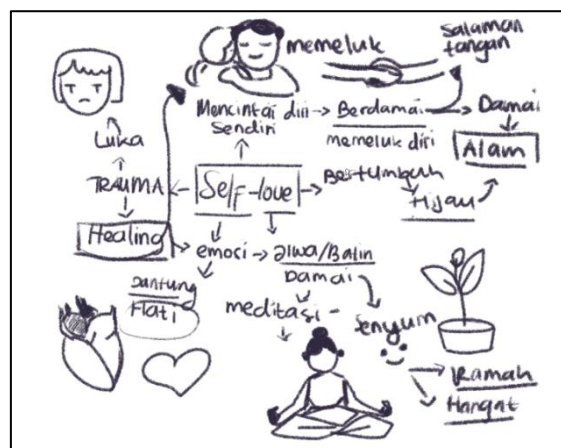 memeluk
salaman
tangan
Mencintai diri
sendiri
Berdamai
memeluk diri
Damai
Alam
Luka
TRAUMA
Self-love
Bertumbuh
Hijau
Healing
emosi
Jiwa/Batin
Damai
Jantung
Hati
meditasi
senyum
Ramah
Hangat